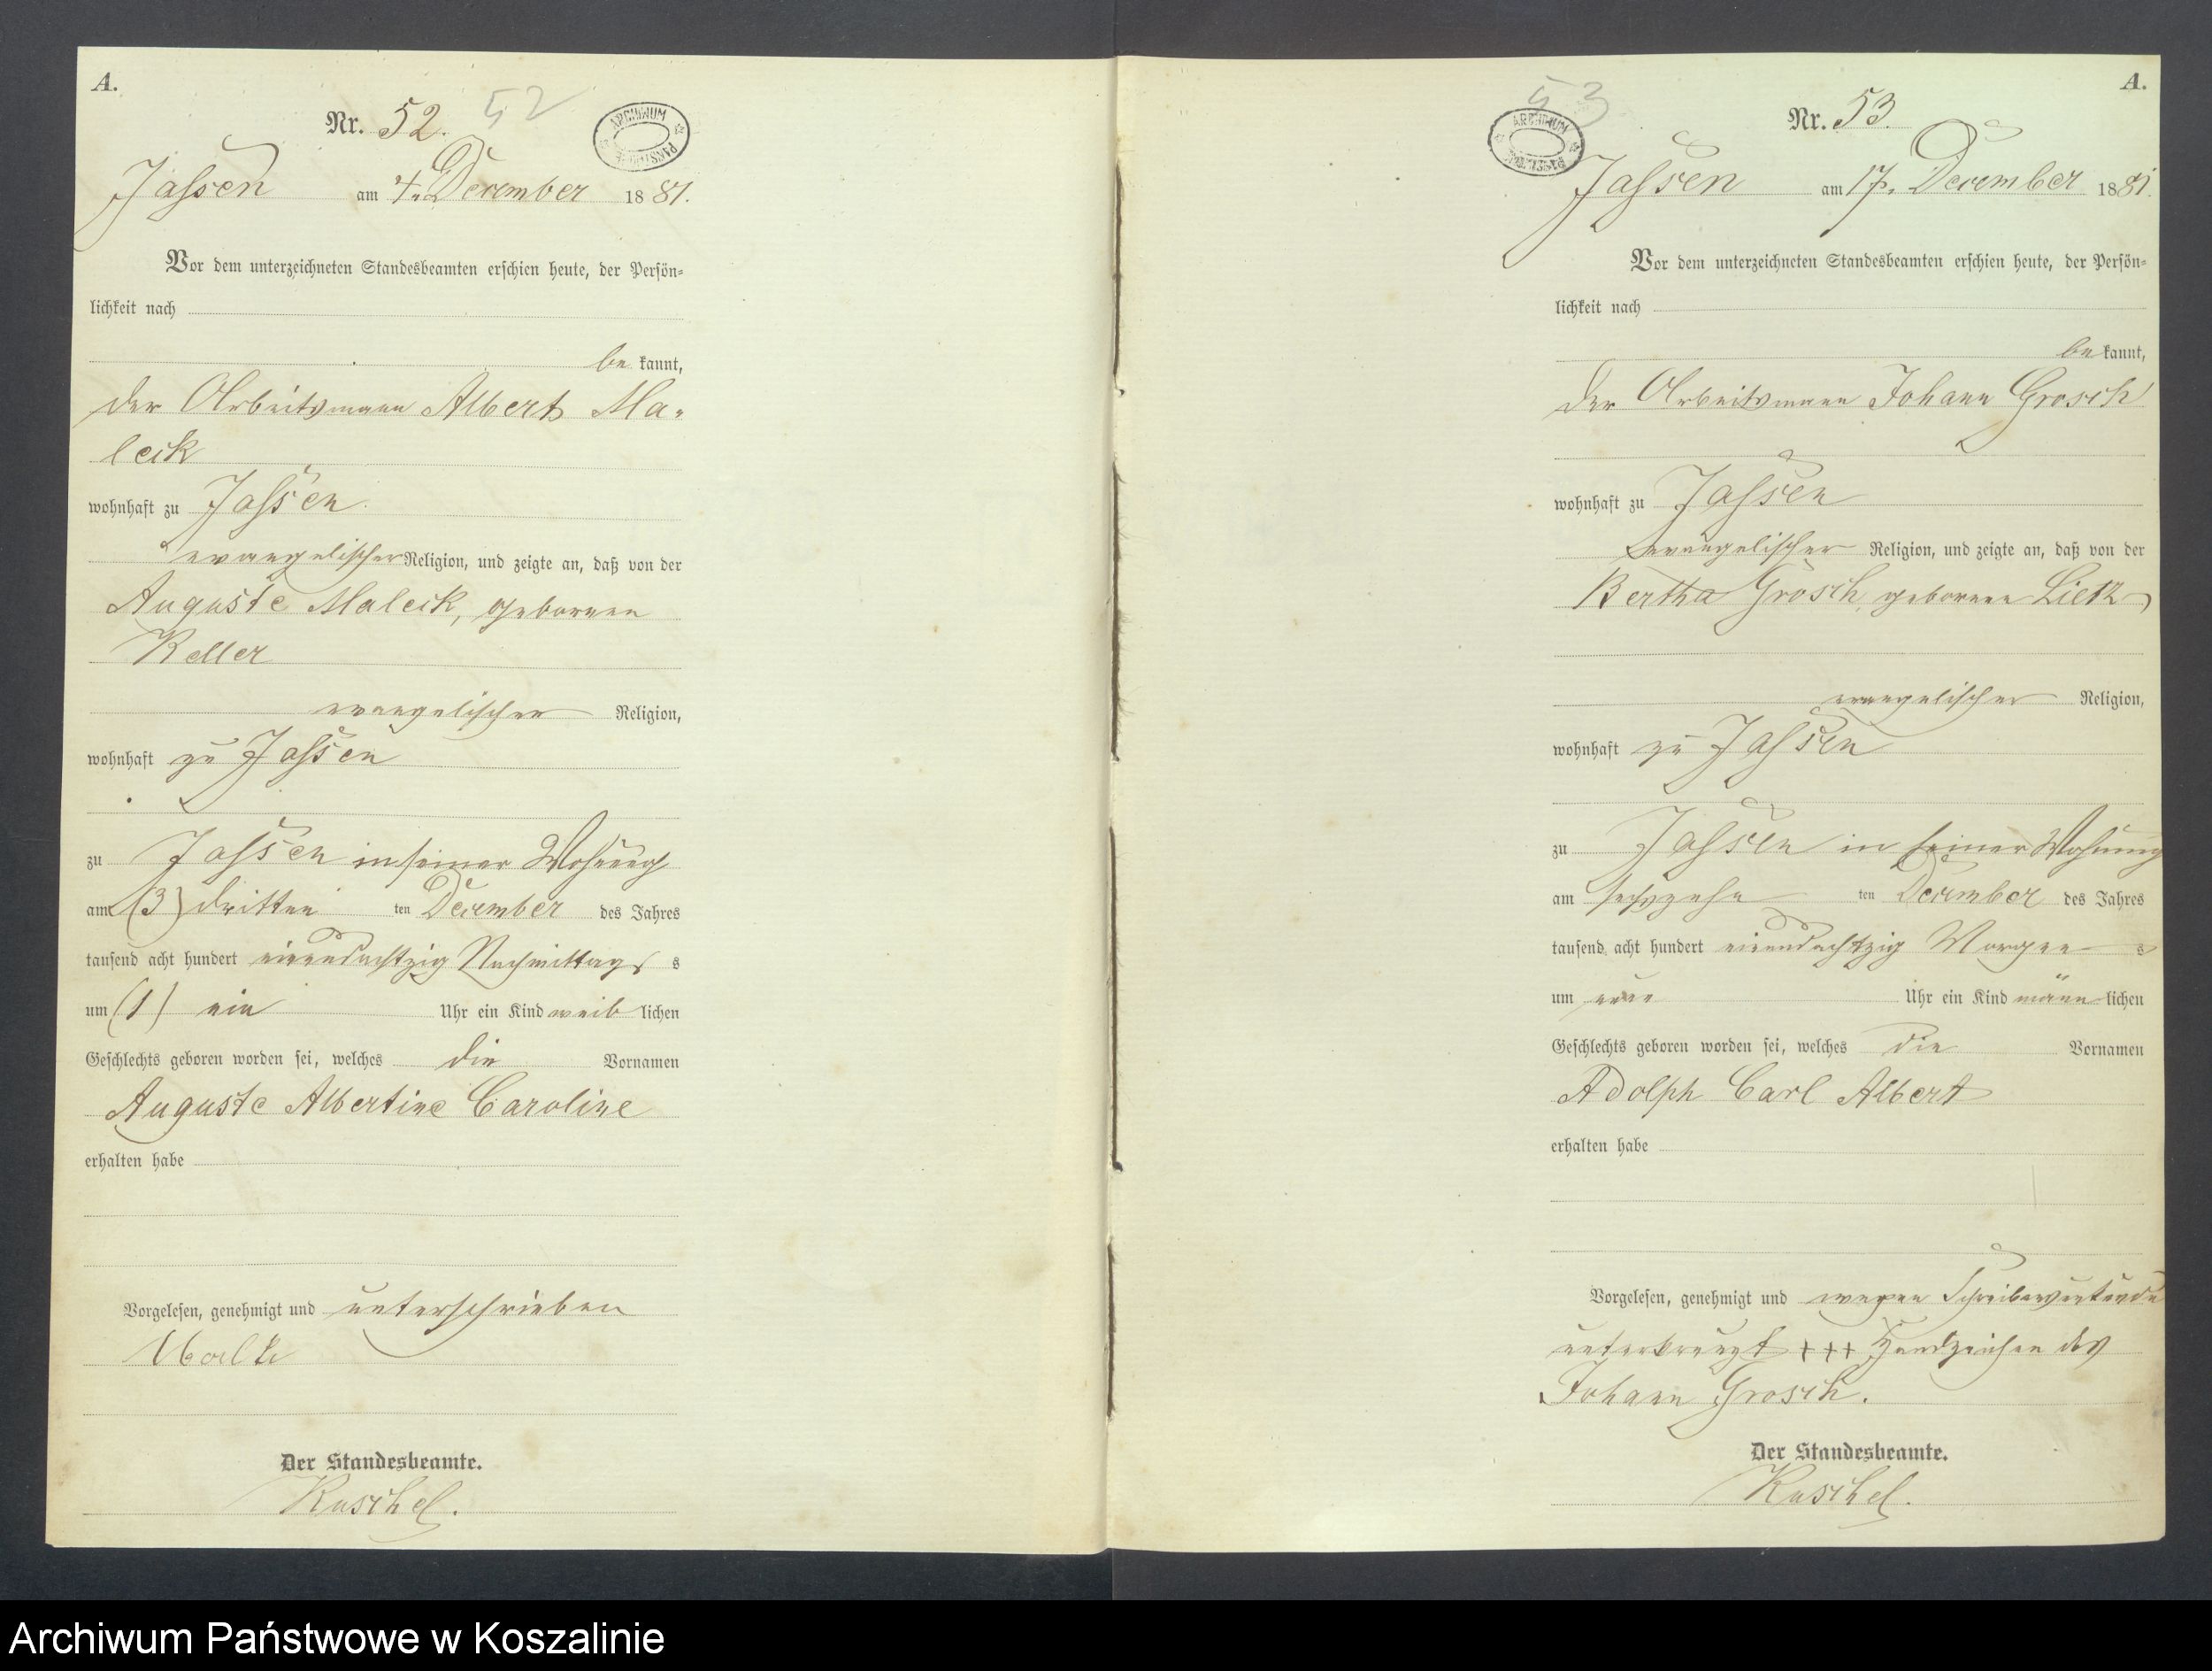 A.
Nr. 52. 52
ARCHIWUM PAŃSTWOWE
Jassen am 4. December 1881.
Vor dem unterzeichneten Standesbeamten erschien heute, der Persön-
lichkeit nach
be kannt,
der Arbeitsmann Albert Ma-
leck
wohnhaft zu Jassen
evangelischer Religion, und zeigte an, daß von der
Auguste Maleck, geborenen
Keller
evangelischer Religion,
wohnhaft zu Jassen
zu Jassen in seiner Wohnung
am (3) dritten ten December des Jahres
tausend acht hundert einundachtzig Nachmittags s
um (1) ein Uhr ein Kind weib lichen
Geschlechts geboren worden sei, welches die Vornamen
Auguste Albertine Caroline
erhalten habe
Vorgelesen, genehmigt und unterschrieben
Der Standesbeamte.
Kuschel.
A.
53
Nr. 53.
ARCHIWUM PAŃSTWOWE
Jassen am 17. December 1881.
Vor dem unterzeichneten Standesbeamten erschien heute, der Persön-
lichkeit nach
be kannt,
der Arbeitsmann Johann Grosch
wohnhaft zu Jassen
evangelischer Religion, und zeigte an, daß von der
Bertha Grosch geborenen Lietz
evangelischer Religion,
wohnhaft zu Jassen
zu Jassen in seiner Wohnung
am sechszehn ten December des Jahres
tausend acht hundert einundachtzig Morgen s
um Uhr ein Kind männ lichen
Geschlechts geboren worden sei, welches die Vornamen
Adolph Carl Albert
erhalten habe
Vorgelesen, genehmigt und wegen Schreibensunkunde
unterkreuzt +++ Handzeichen des
Johann Grosch.
Der Standesbeamte.
Kuschel.
Archiwum Państwowe w Koszalinie